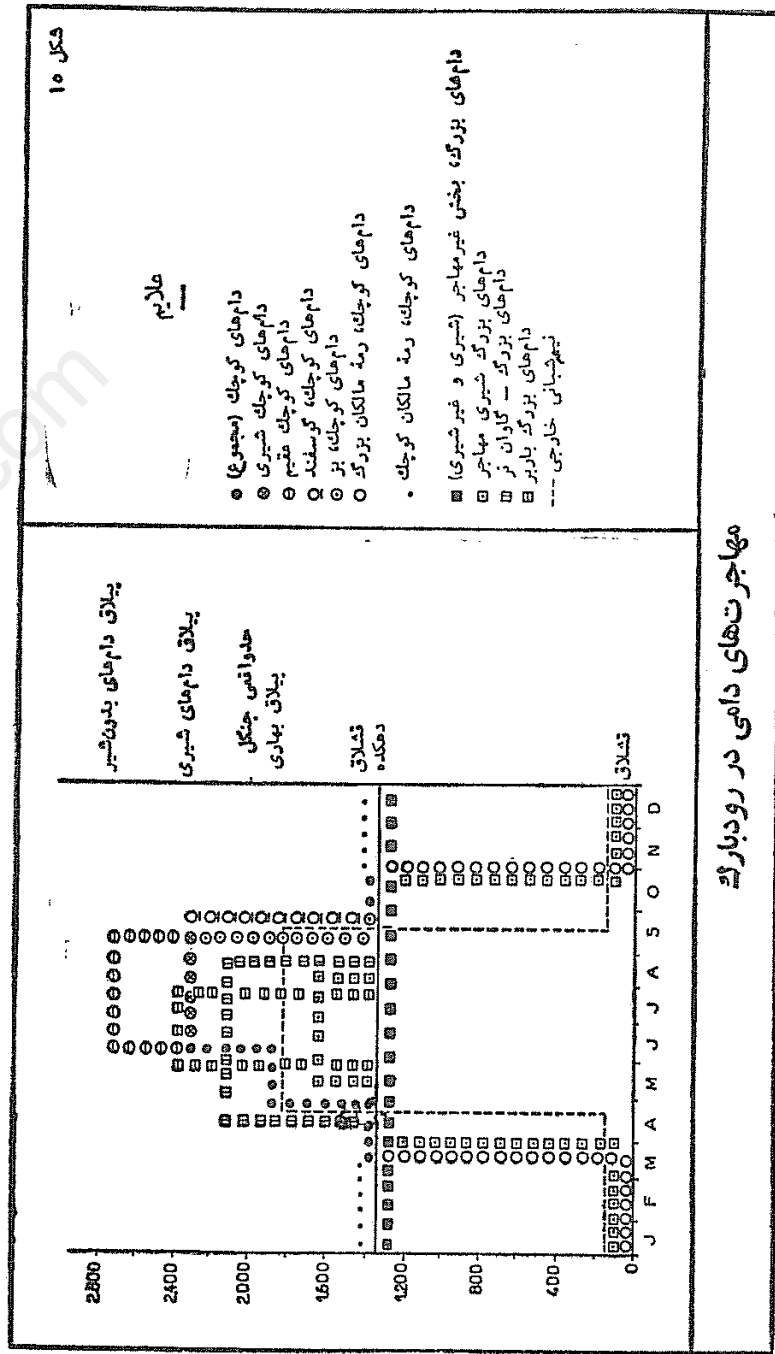 شکل ۱۰
علایم
● دام‌های کوچک (مجموع)
⊗ دام‌های کوچک شیری
⊖ دام‌های کوچک عقیم
دام‌های کوچک، گوسفند
⊙ دام‌های کوچک، بز
○ دام‌های کوچک، رمهٔ مالکان بزرگ
• دام‌های کوچک، رمهٔ مالکان کوچک
دام‌های بزرگ، بخش غیرمهاجر (شیری و غیرشیری)
دام‌های بزرگ شیری مهاجر
دام‌های بزرگ – گاوان نر
دام‌های بزرگ باربر
---- نیمه‌شبانی خارجی
ییلاق دام‌های بدون‌شیر
ییلاق دام‌های شیری
حدواقعی جنگل
ییلاق بهاری
قشلاق
دهکده
قشلاق
2800
2400
2000
1600
1200
800
400
0
J F M A M J J A S O N D
مهاجرت‌های دامی در رودبارک
com